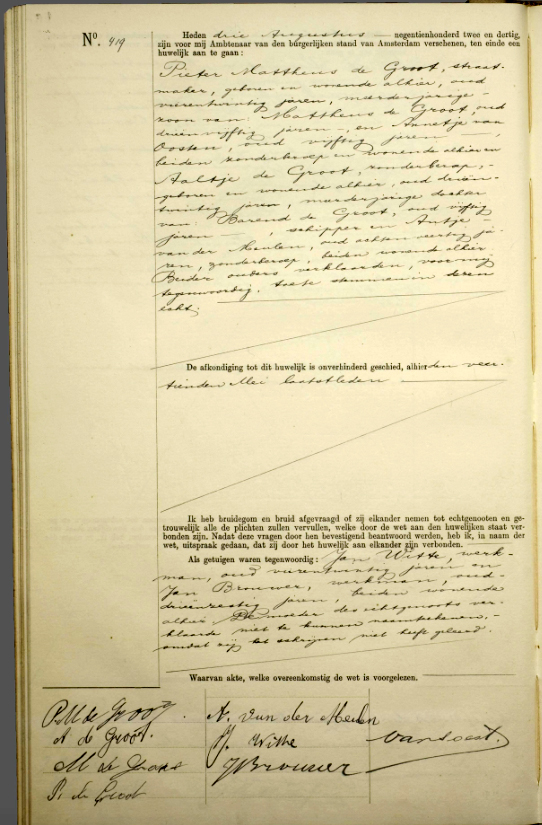 N⁰. 419
Heden drie Augustus negentienhonderd twee en dertig,
zijn voor mij Ambtenaar van den burgerlijken stand van Amsterdam verschenen, ten einde een
huwelijk aan te gaan:
Pieter Mattheus de Groot, straat-
maker, geboren en wonende alhier, oud
vierentwintig jaren, meerderjarige
zoon van: Mattheus de Groot, oud
drieënvijftig jaren, en Annetje van
Oosten, oud vijftig jaren,
beiden zonder beroep en wonende alhier en
Aaltje de Groot, zonder beroep,
geboren en wonende alhier, oud drieën-
twintig jaren, meerderjarige dochter
van: Barend de Groot, oud vijftig
jaren, schipper en Antje
van der Meulen, oud achtenveertig ja-
ren, zonder beroep, beiden wonende alhier
Beider ouders verklaarden, voor mij
tegenwoordig, toe te stemmen in dezen
echt.
De afkondiging tot dit huwelijk is onverhinderd geschied, alhier den veer-
tienden Mei laatstleden
Ik heb bruidegom en bruid afgevraagd of zij elkander nemen tot echtgenooten en ge-
trouwelijk alle de plichten zullen vervullen, welke door de wet aan den huwelijken staat ver-
bonden zijn. Nadat deze vragen door hen bevestigend beantwoord werden, heb ik, in naam der
wet, uitspraak gedaan, dat zij door het huwelijk aan elkander zijn verbonden.
Als getuigen waren tegenwoordig: Jan Witte, werk-
man, oud vierentwintig jaren en
Jan Brouwer, werkman, oud
drieënzestig jaren, beiden wonende
alhier. De moeder des echtgenoots ver-
klaarde niet te kunnen naamtekenen,
omdat zij het schrijven niet heeft geleerd.
Waarvan akte, welke overeenkomstig de wet is voorgelezen.
P. M de Groot.
A de Groot.
M de Groot
B. de Groot
A. van der Meulen
J. Witte
J Brouwer